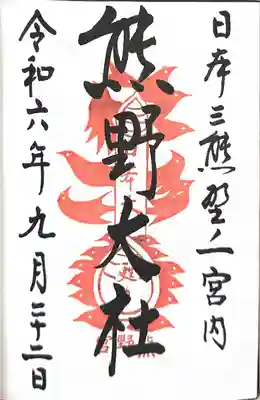 日本三熊野ノ一宮内
熊野大社
令和六年九月二十二日